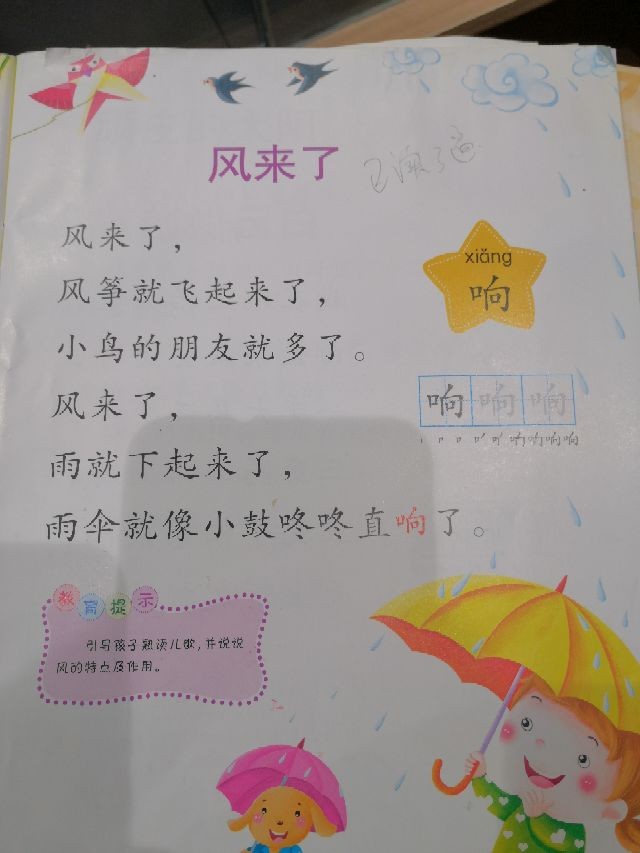 风来了
风来了，
风筝就飞起来了，
小鸟的朋友就多了。
风来了，
雨就下起来了，
雨伞就像小鼓咚咚直响了。
xiǎng
响
响 响 响
教育提示
引导孩子熟读儿歌，并说说
风的特点及作用。